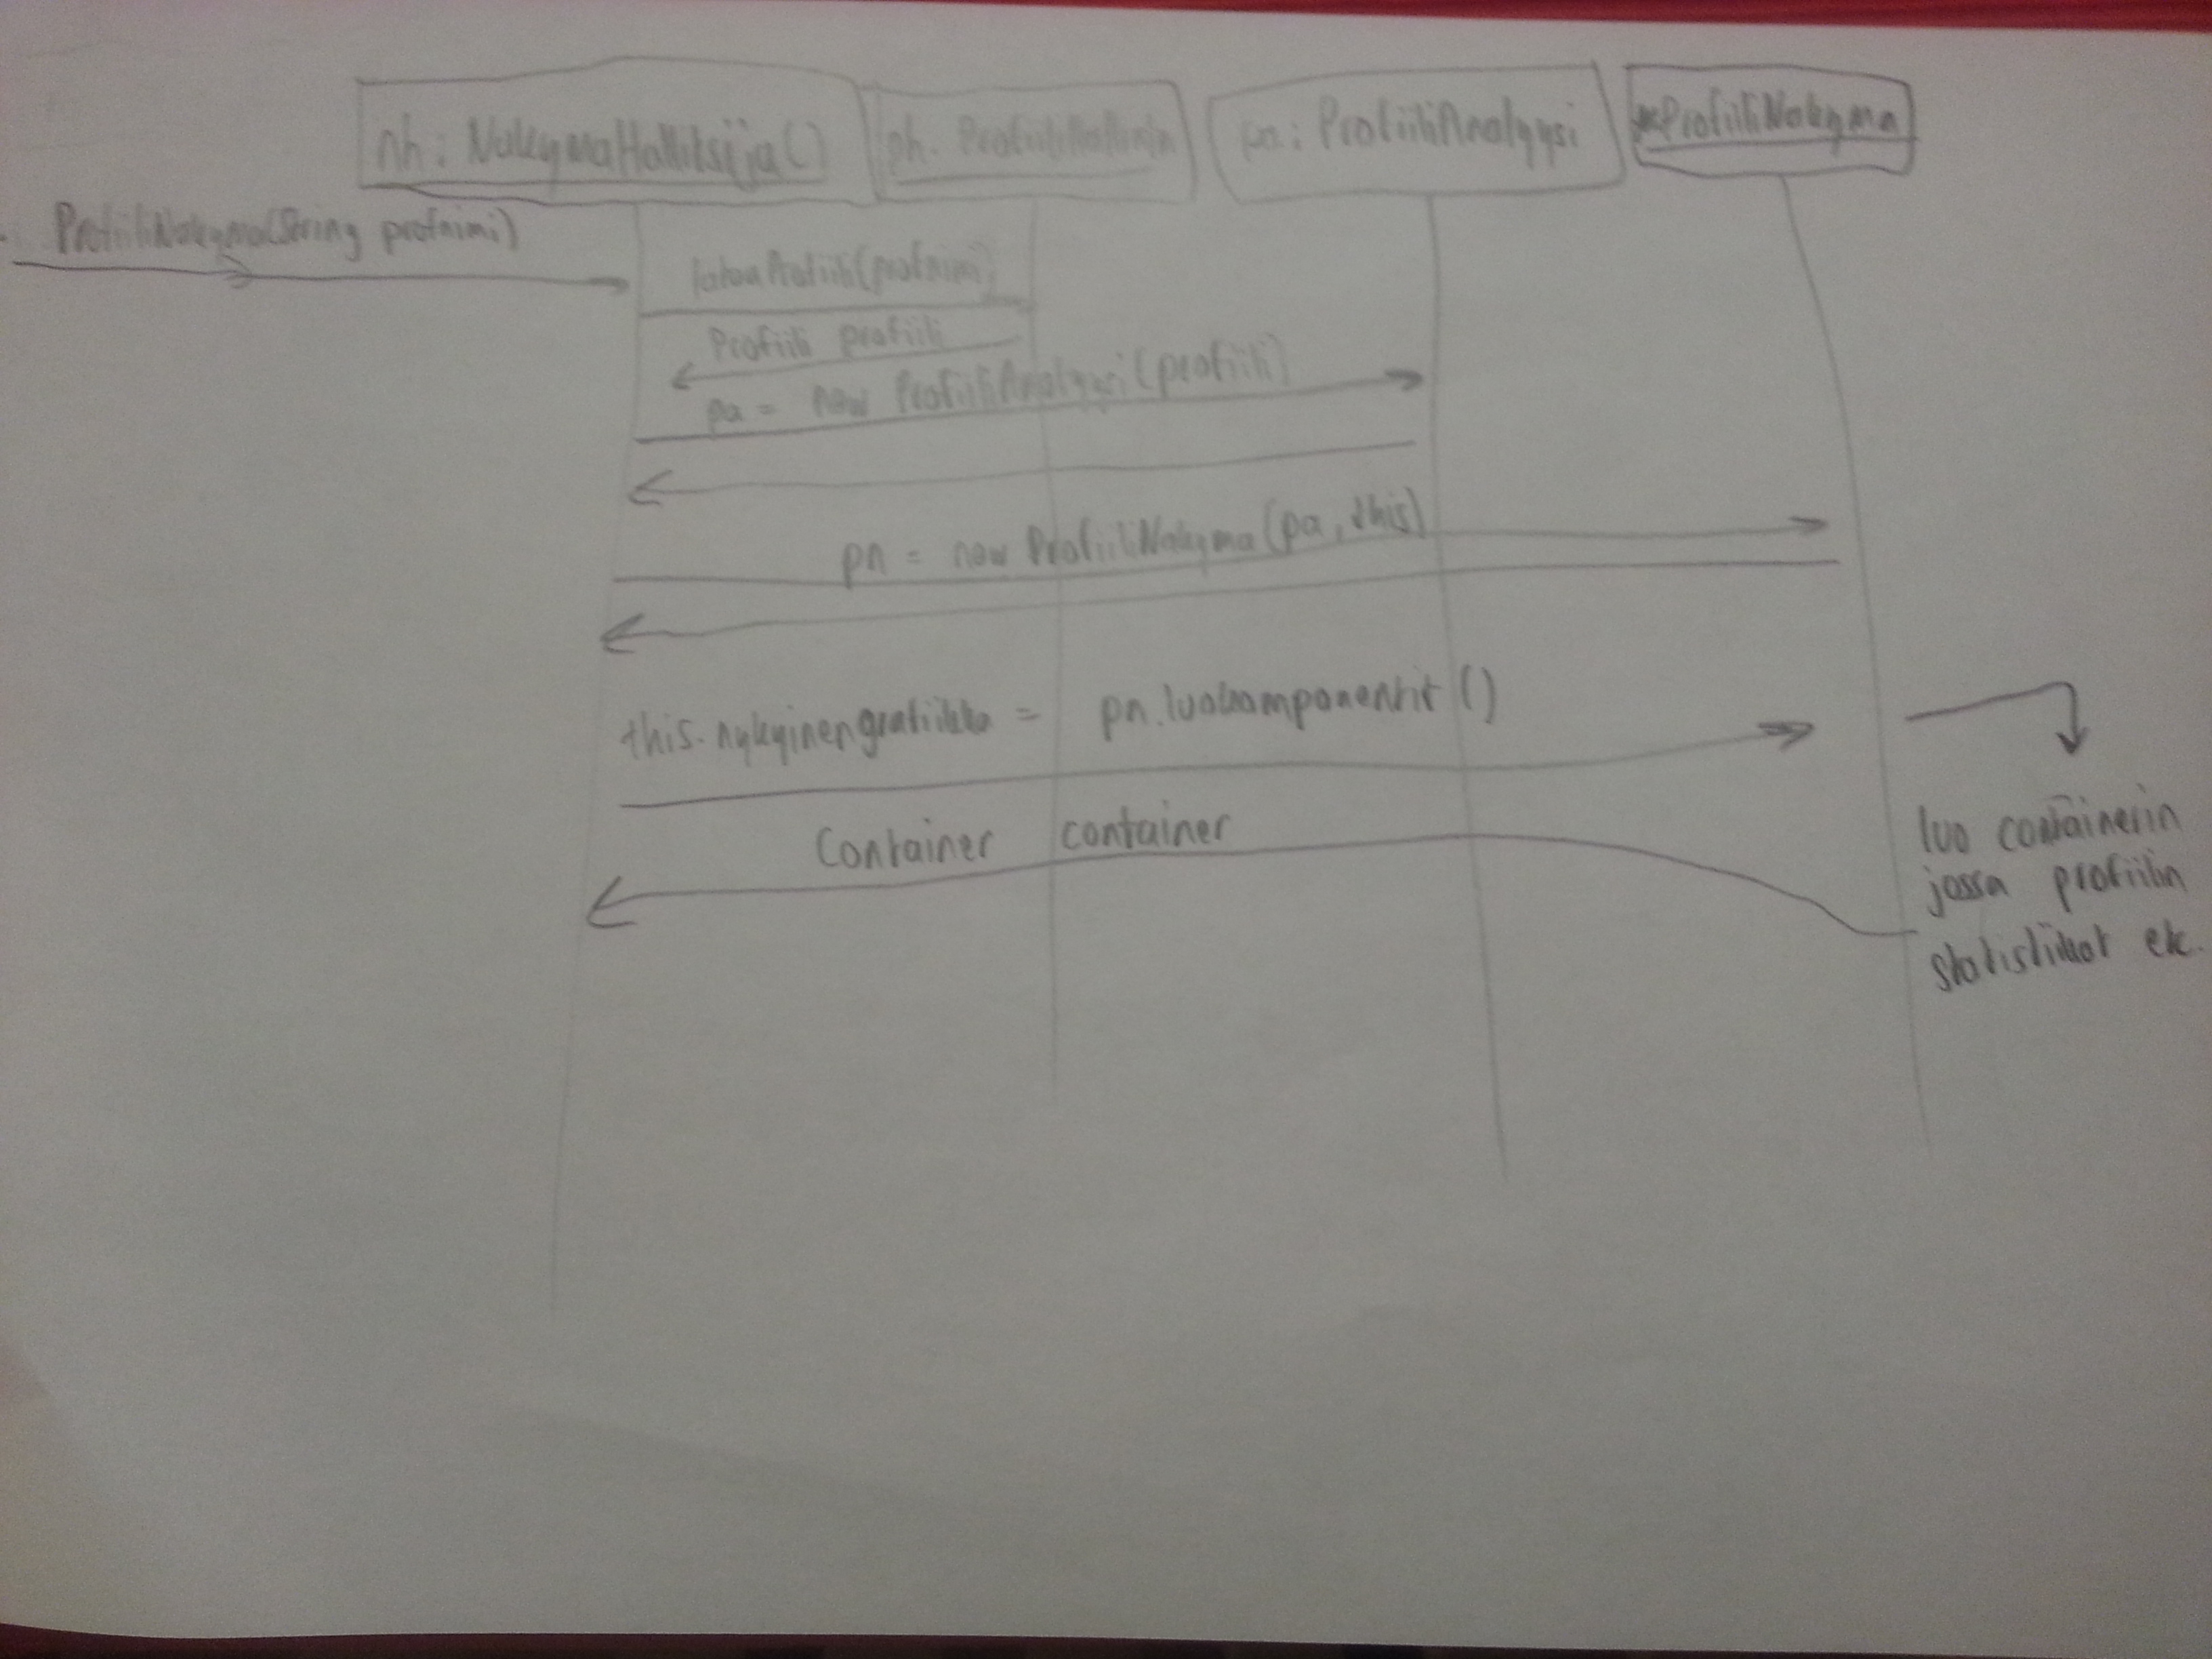 nh: NakymaHallitsija()
ph: Profiili
pa: ProfiiliAnalyysi
ProfiiliNakyma
ProfiiliNakyma(String profnimi)
Profiili(profnimi)
Profiili profiili
pa = new ProfiiliAnalyysi(profiili)
pn = new ProfiiliNakyma(pa, this)
this.nykyinengrafiikka = pn.luokomponentit()
Container container
luo containerin
jossa profiilin
statistiikat etc.